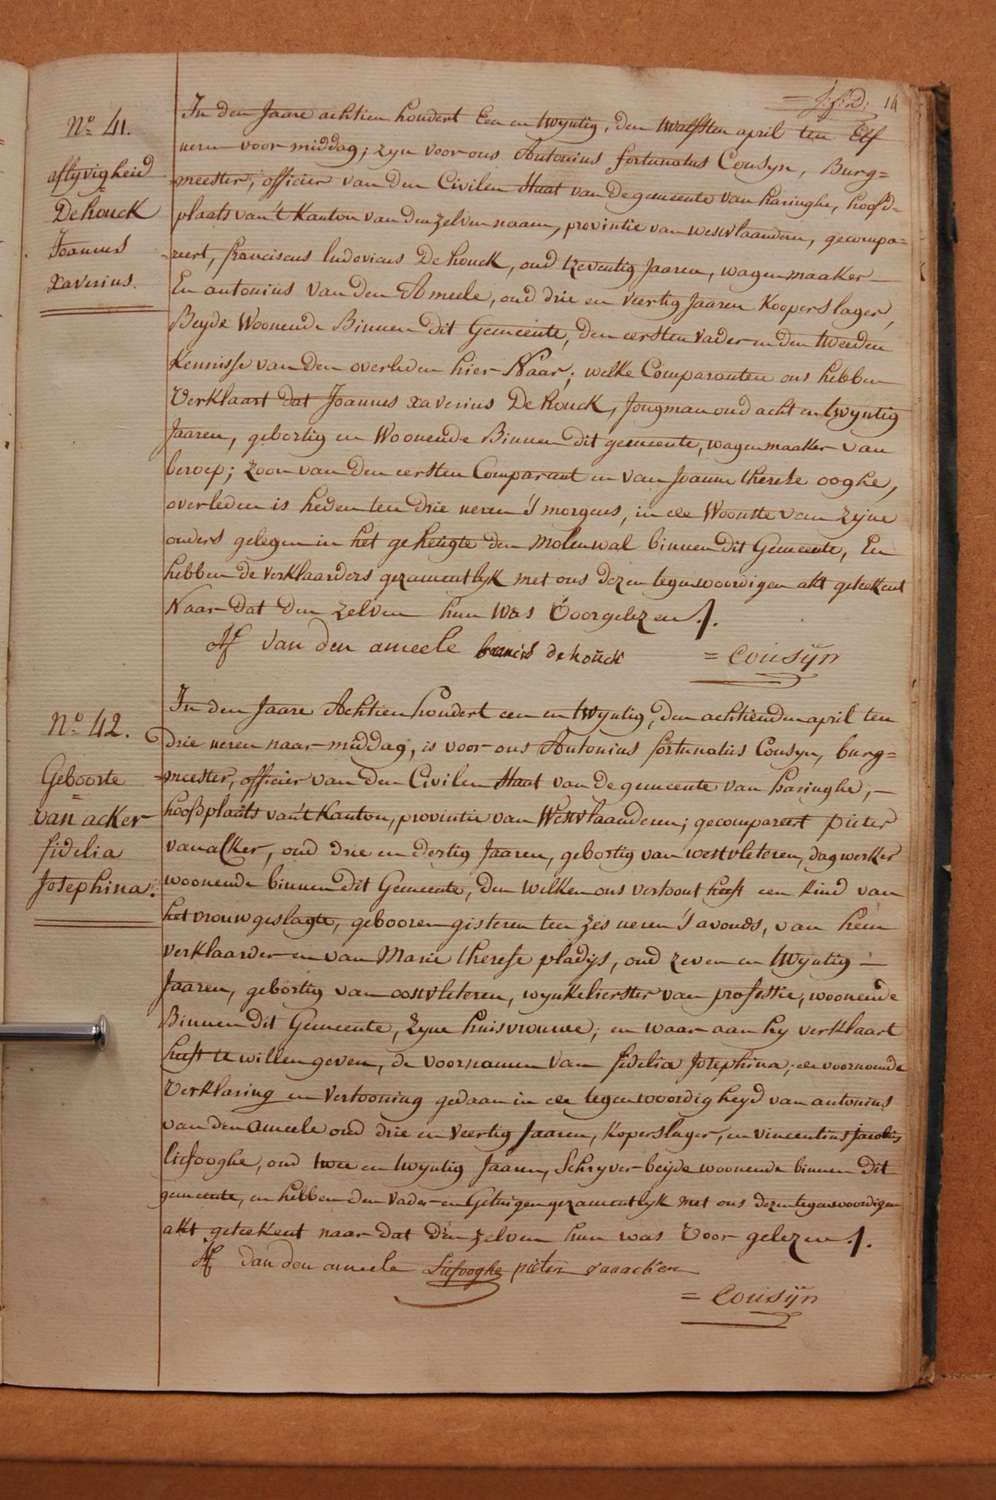 14
N.º 41.
aflyvigheid
De houck
Joannes
Xaverius.
In den Jaare achtien hondert Een en twyntig, den twalfsten april ten Elf
uren voor middag; zyn voor ons Antonius fortunatus Cousyn, Burg=
meester, officier van den Civilen Staat van De gemeente van haringhe, hoofd-
plaats van't Kanton van den zelven naam, provintie van westvlaanderen, gecompa-
reert, franciscus ludovicus De houck, oud tzeventig Jaaren, wagenmaaker
En antonius van den Ameele, oud drie en veertig Jaaren Koperslager,
Beyde Woonende Binnen dit Gemeente, den eersten Vader en den tweeden
Kennisse van den overleden hier Naar; welke Comparanten ons hebben
Verklaart dat Joannes xaverius De houck, Jongman oud acht en twyntig
Jaaren, gebortig en Woonende Binnen dit gemeente, wagenmaaker van
beroep; zoon van den eersten Comparant en van Joanna therese ooghe,
overleden is heden ten drie uren 's morgens, in de Woonste van zyne
ouders gelegen in het gehengte den Molenwal binnen dit Gemeente, En
hebben de verklaarders gezamentlyk met ons dezen tegenwoordigen akt geteekent
Naar dat den zelven hun Was Voorgelezen ./.
AF van den ameele francis de houck = Cousijn
N.º 42.
Geboorte
=
van acker
fidelia
Josephina.
In den Jaare Achtien hondert een en twyntig, den achtienden april ten
Drie uren naar middag, is voor ons Antonius fortunatus Cousyn, burg=
meester, officier van den Civilen Staat van de gemeente van haringhe,
hoofdplaats van't Kanton, provintie van Westvlaanderen; gecompareert pieter
vanakker, oud drie en dertig Jaaren, gebortig van westvleteren, dagwerker
woonende binnen dit Gemeente, Den welken ons vertoont heeft een kind van
het vrouwgeslagte, gebooren gisteren ten zes uren 's avonds, van hem
verklaarder en van Marie therese pladijs, oud zeven en twyntig
Jaaren, gebortig van oostvleteren, wynkelierster van professie, woonende
Binnen dit Gemeente, zyne huisvrouwe; en waar aan hy verklaart
heeft te willen geven, de voornamen van fidelia Josephina; de voornoemde
Verklaring en Vertooning gedaan in de tegenwoordigheyd van antonius
van den ameele oud drie en veertig Jaaren, Koperslager, en vincentius Jacobus
liefooghe, oud twee en twyntig Jaaren, Schryver beyde woonende binnen dit
gemeente, en hebben den vader en Getuigen gezamentlyk met ons dezen tegenwoordigen
akt geteekent naar dat den zelven hun was Voor gelezen ./.
AF van den ameele Liefooghe pieter vanacker
= Cousijn